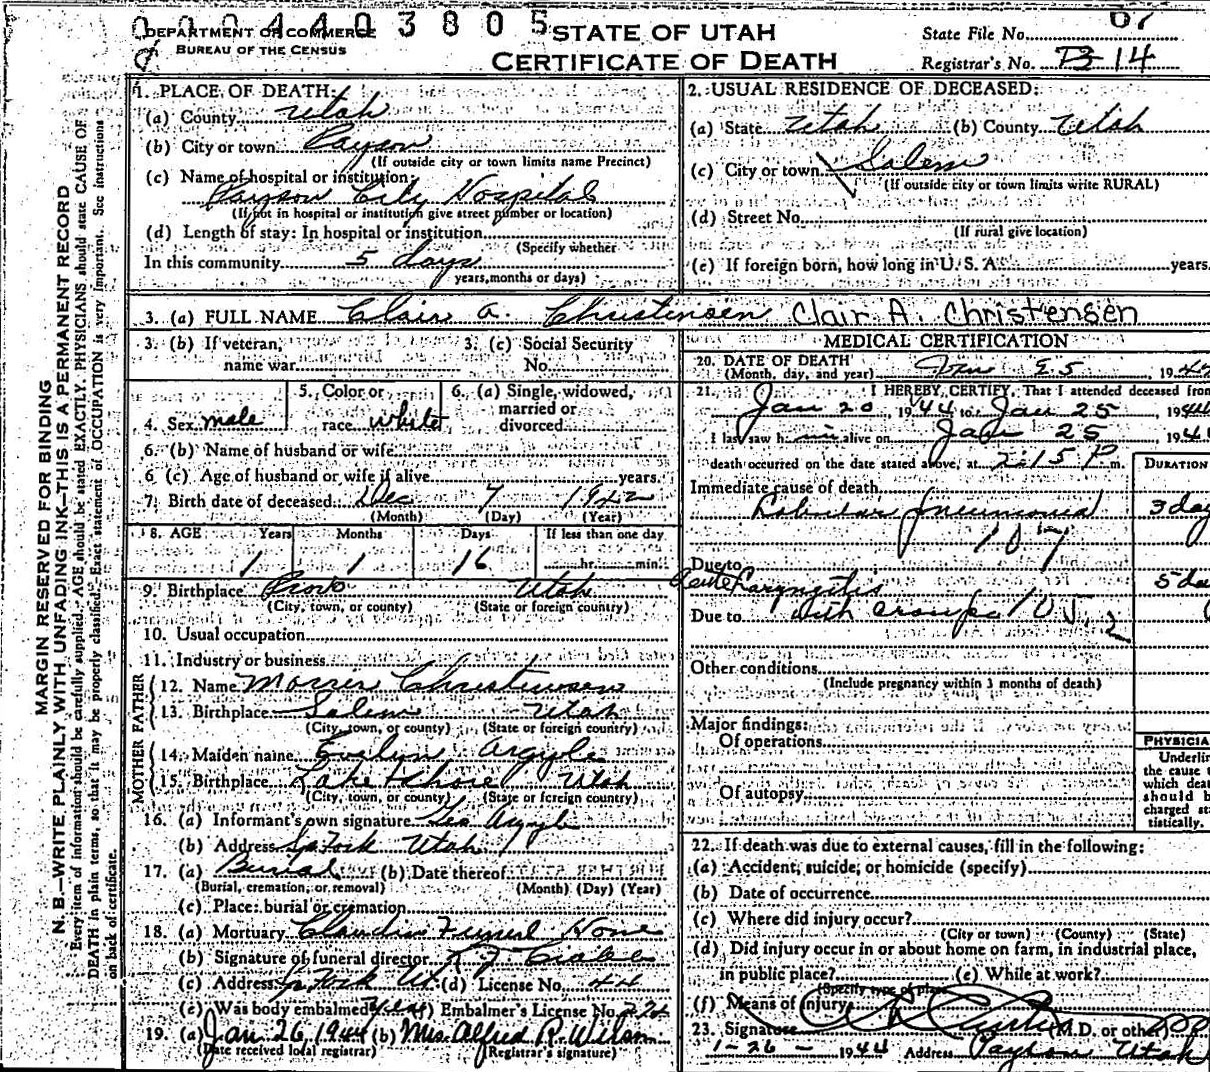 0 0 0 4 4 0 3 8 0 5
DEPARTMENT OF COMMERCE
BUREAU OF THE CENSUS
STATE OF UTAH
CERTIFICATE OF DEATH
State File No. 67
Registrar's No. 14
MARGIN RESERVED FOR BINDING
N. B.—WRITE PLAINLY WITH UNFADING INK—THIS IS A PERMANENT RECORD
Every item of information should be carefully supplied. AGE should be stated EXACTLY. PHYSICIANS should state CAUSE OF
DEATH in plain terms, so that it may be properly classified. Exact statement of OCCUPATION is very important. See instructions
on back of certificate.
1. PLACE OF DEATH:
(a) County Utah
(b) City or town Payson
(If outside city or town limits name Precinct)
(c) Name of hospital or institution:
Payson City Hospital
(If not in hospital or institution give street number or location)
(d) Length of stay: In hospital or institution
(Specify whether
In this community 5 days
years, months or days)
2. USUAL RESIDENCE OF DECEASED:
(a) State Utah (b) County Utah
(c) City or town Salem
(If outside city or town limits write RURAL)
(d) Street No.
(If rural give location)
(e) If foreign born, how long in U. S. A. years.
3. (a) FULL NAME Clair A. Christensen Clair A. Christensen
3. (b) If veteran, 3. (c) Social Security
name war No.
4. Sex male
5. Color or
race white
6. (a) Single, widowed,
married or
divorced
6. (b) Name of husband or wife
6 (c) Age of husband or wife if alive years.
7. Birth date of deceased Dec 7 1942
(Month) (Day) (Year)
8. AGE Years Months Days If less than one day
1 1 16 hr. min.
9. Birthplace Provo Utah
(City, town, or county) (State or foreign country)
10. Usual occupation
11. Industry or business
FATHER
12. Name Morris Christensen
13. Birthplace Salem Utah
(City, town, or county) (State or foreign country)
MOTHER
14. Maiden name Evelyn Argyle
15. Birthplace Lake Shore Utah
(City, town, or county) (State or foreign country)
16. (a) Informant's own signature Geo Argyle
(b) Address Sp Fork Utah
17. (a) Burial (b) Date thereof
(Burial, cremation, or removal) (Month) (Day) (Year)
(c) Place: burial or cremation
18. (a) Mortuary Claudin Funeral Home
(b) Signature of funeral director
(c) Address Sp Fork Ut (d) License No. 44
(e) Was body embalmed (yes) Embalmer's License No.
19. (a) Jan. 26, 1944 (b) Mrs. Alfred R. Wilson
(Date received local registrar) (Registrar's signature)
MEDICAL CERTIFICATION
20. DATE OF DEATH
(Month, day, and year) Jan 25, 1944
21. I HEREBY CERTIFY, That I attended deceased from
Jan 20, 1944 to Jan 25, 1944
I last saw him alive on Jan 25, 194
death occurred on the date stated above, at 2:15 P m.
DURATION
Immediate cause of death
Lobular pneumonia 3 day
107
Due to
Acute Laryngitis 5 da
Due to with croup 105.2
Other conditions
(Include pregnancy within 3 months of death)
Major findings:
Of operations
Of autopsy
PHYSICIA
Underlin
the cause t
which deat
should b
charged sta
tistically.
22. If death was due to external causes, fill in the following:
(a) Accident, suicide, or homicide (specify)
(b) Date of occurrence
(c) Where did injury occur?
(City or town) (County) (State)
(d) Did injury occur in or about home on farm, in industrial place,
in public place? (e) While at work?
(Specify type of place
(f) Means of injury
23. Signature M.D. or other
1-26-1944 Address Payson Utah